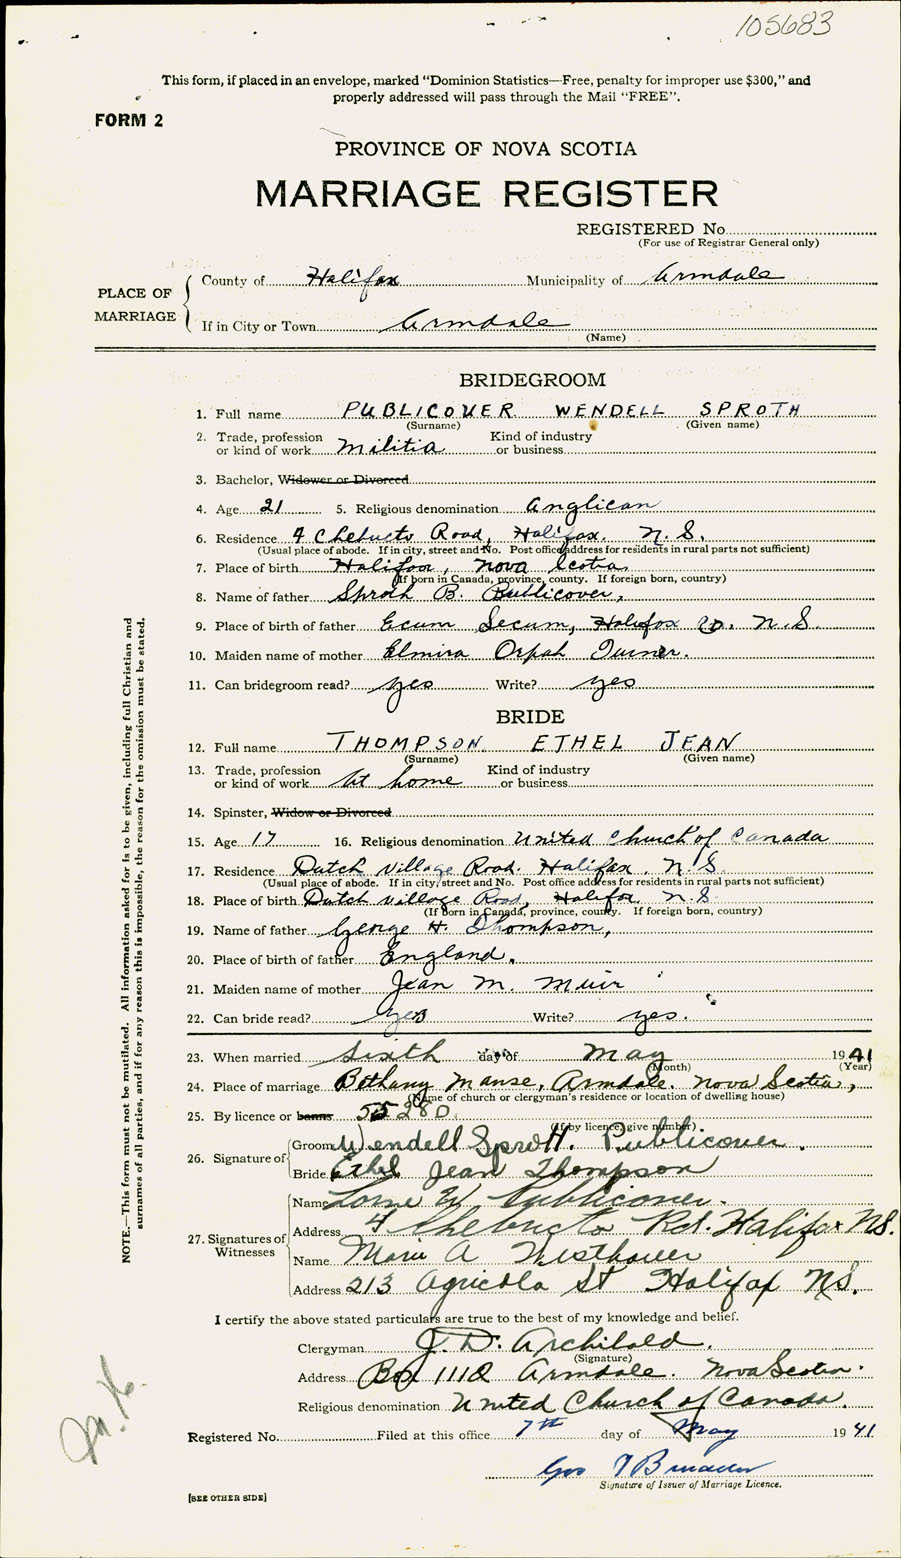 105683
This form, if placed in an envelope, marked "Dominion Statistics—Free, penalty for improper use $300," and
properly addressed will pass through the Mail "FREE".
FORM 2
PROVINCE OF NOVA SCOTIA
MARRIAGE REGISTER
REGISTERED No
(For use of Registrar General only)
PLACE OF MARRIAGE
County of Halifax Municipality of Armdale
If in City or Town Armdale
(Name)
BRIDEGROOM
1. Full name PUBLICOVER WENDELL SPROTH
(Surname) (Given name)
2. Trade, profession or kind of work Militia Kind of industry or business
3. Bachelor, Widower or Divorced
4. Age 21 5. Religious denomination Anglican
6. Residence 4 Chebucto Road, Halifax. N.S.
(Usual place of abode. If in city, street and No. Post office address for residents in rural parts not sufficient)
7. Place of birth Halifax, Nova Scotia
(If born in Canada, province, county. If foreign born, country)
8. Name of father Sproth B. Publicover,
9. Place of birth of father Ecum Secum, Halifax Co. N.S.
10. Maiden name of mother Elmira Orpah Turner.
11. Can bridegroom read? yes Write? yes
BRIDE
12. Full name THOMPSON. ETHEL JEAN
(Surname) (Given name)
13. Trade, profession or kind of work At home Kind of industry or business
14. Spinster, Widow or Divorced
15. Age 17 16. Religious denomination United Church of Canada
17. Residence Dutch Village Road. Halifax. N.S.
(Usual place of abode. If in city, street and No. Post office address for residents in rural parts not sufficient)
18. Place of birth Dutch Village Road, Halifax. N.S.
(If born in Canada, province, county. If foreign born, country)
19. Name of father George H. Thompson,
20. Place of birth of father England.
21. Maiden name of mother Jean M. Muir
22. Can bride read? yes Write? yes.
23. When married Sixth day of May 1941
(Month) (Year)
24. Place of marriage Bethany Manse, Armdale. Nova Scotia,
(Name of church or clergyman's residence or location of dwelling house)
25. By licence or banns 55280
(If by licence, give number)
26. Signature of
Groom Wendell Sprott. Publicover.
Bride Ethel Jean Thompson
27. Signatures of Witnesses
Name Lorne W Publicover.
Address 4 Chebucto Rd. Halifax N.S.
Name Marie A Westhaver
Address 213 Agricola St Halifax N.S.
I certify the above stated particulars are true to the best of my knowledge and belief.
Clergyman J. D. Archibald.
(Signature)
Address Box 111Q Armdale. Nova Scotia.
Religious denomination United Church of Canada.
Registered No. Filed at this office 7th day of May 1941
Geo
Signature of Issuer of Marriage Licence.
[SEE OTHER SIDE]
NOTE.—This form must not be mutilated. All information asked for is to be given, including full Christian and
surnames of all parties, and if for any reason this is impossible, the reason for the omission must be stated.